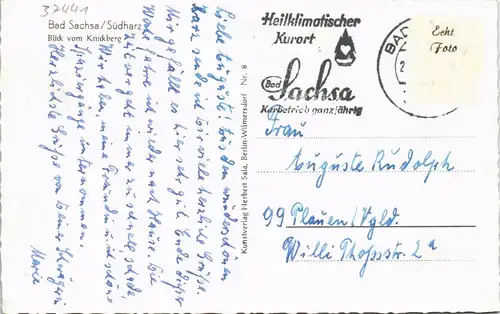 37441
Bad Sachsa/Südharz
Blick vom Knickberg
Liebe Auguste! Aus den wunderschönen
Harz sende ich Dir viele herzliche Grüße.
Mir gefällt es hier sehr gut. Ende dieser
Woche fahre ich wieder nach Hause. Die
Zeit vergeht immer zu schnell, schade,
Wir haben, meine Freundin u. ich schöne
Spaziergänge unternommen.
Herzlichste Grüße von Deiner Schwägerin
Marie
Kunstverlag Herbert Sala, Berlin-Wilmersdorf Nr. 8
Heilklimatischer
Kurort
Bad
Sachsa
Kurbetrieb ganzjährig
BAD
Echt
Foto
Frau
Auguste Rudolph
99 Plauen/Vgld.